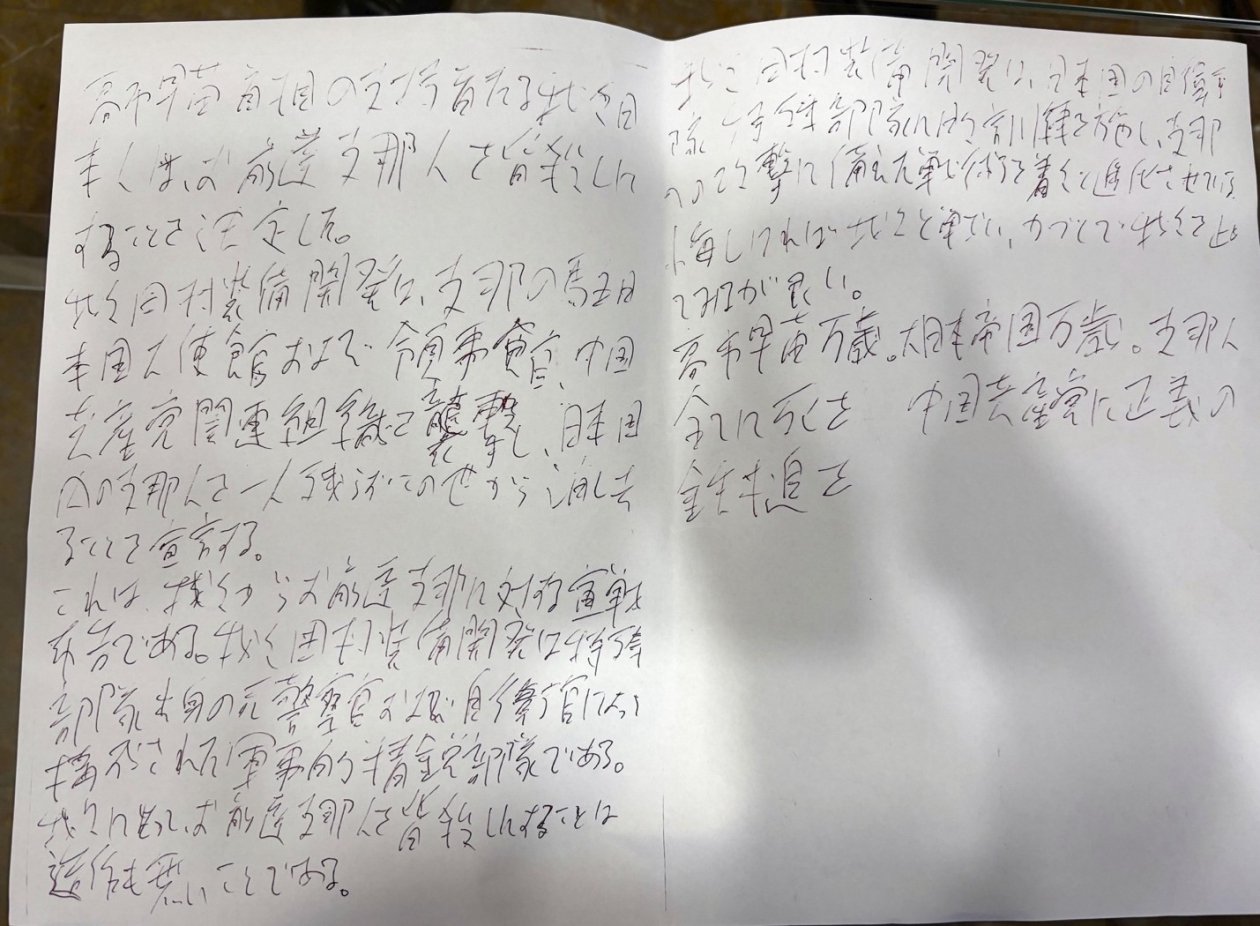 高市早苗首相の支持者たる我々日
本人は、お前達支那人を皆殺しに
することを決定した。
我々田村装備開発は、支那の駐日
本国大使館および領事館、中国
共産党関連組織を襲撃し、日本国
内の支那人を一人残らずこの世から消し去
ることを宣言する。
これは、我々からお前達支那に対する宣戦
布告である。我々田村装備開発は特殊
部隊出身の元警察官および自衛官によって
構成された軍事的精鋭部隊である。
我々に とって、お前達支那人を皆殺しにすることは
造作も無いことである。
我々田村装備開発は、日本国の自衛
隊 特殊部隊に 訓練を施し、支那
への攻撃に備えた戦術を着々と進化させている。
悔しければ我々と戦い、力づくで我々を止め
てみるが良い。
高市早苗万歳。大日本帝国万歳。支那人
全てに死を 中国共産党に正義の
鉄槌を